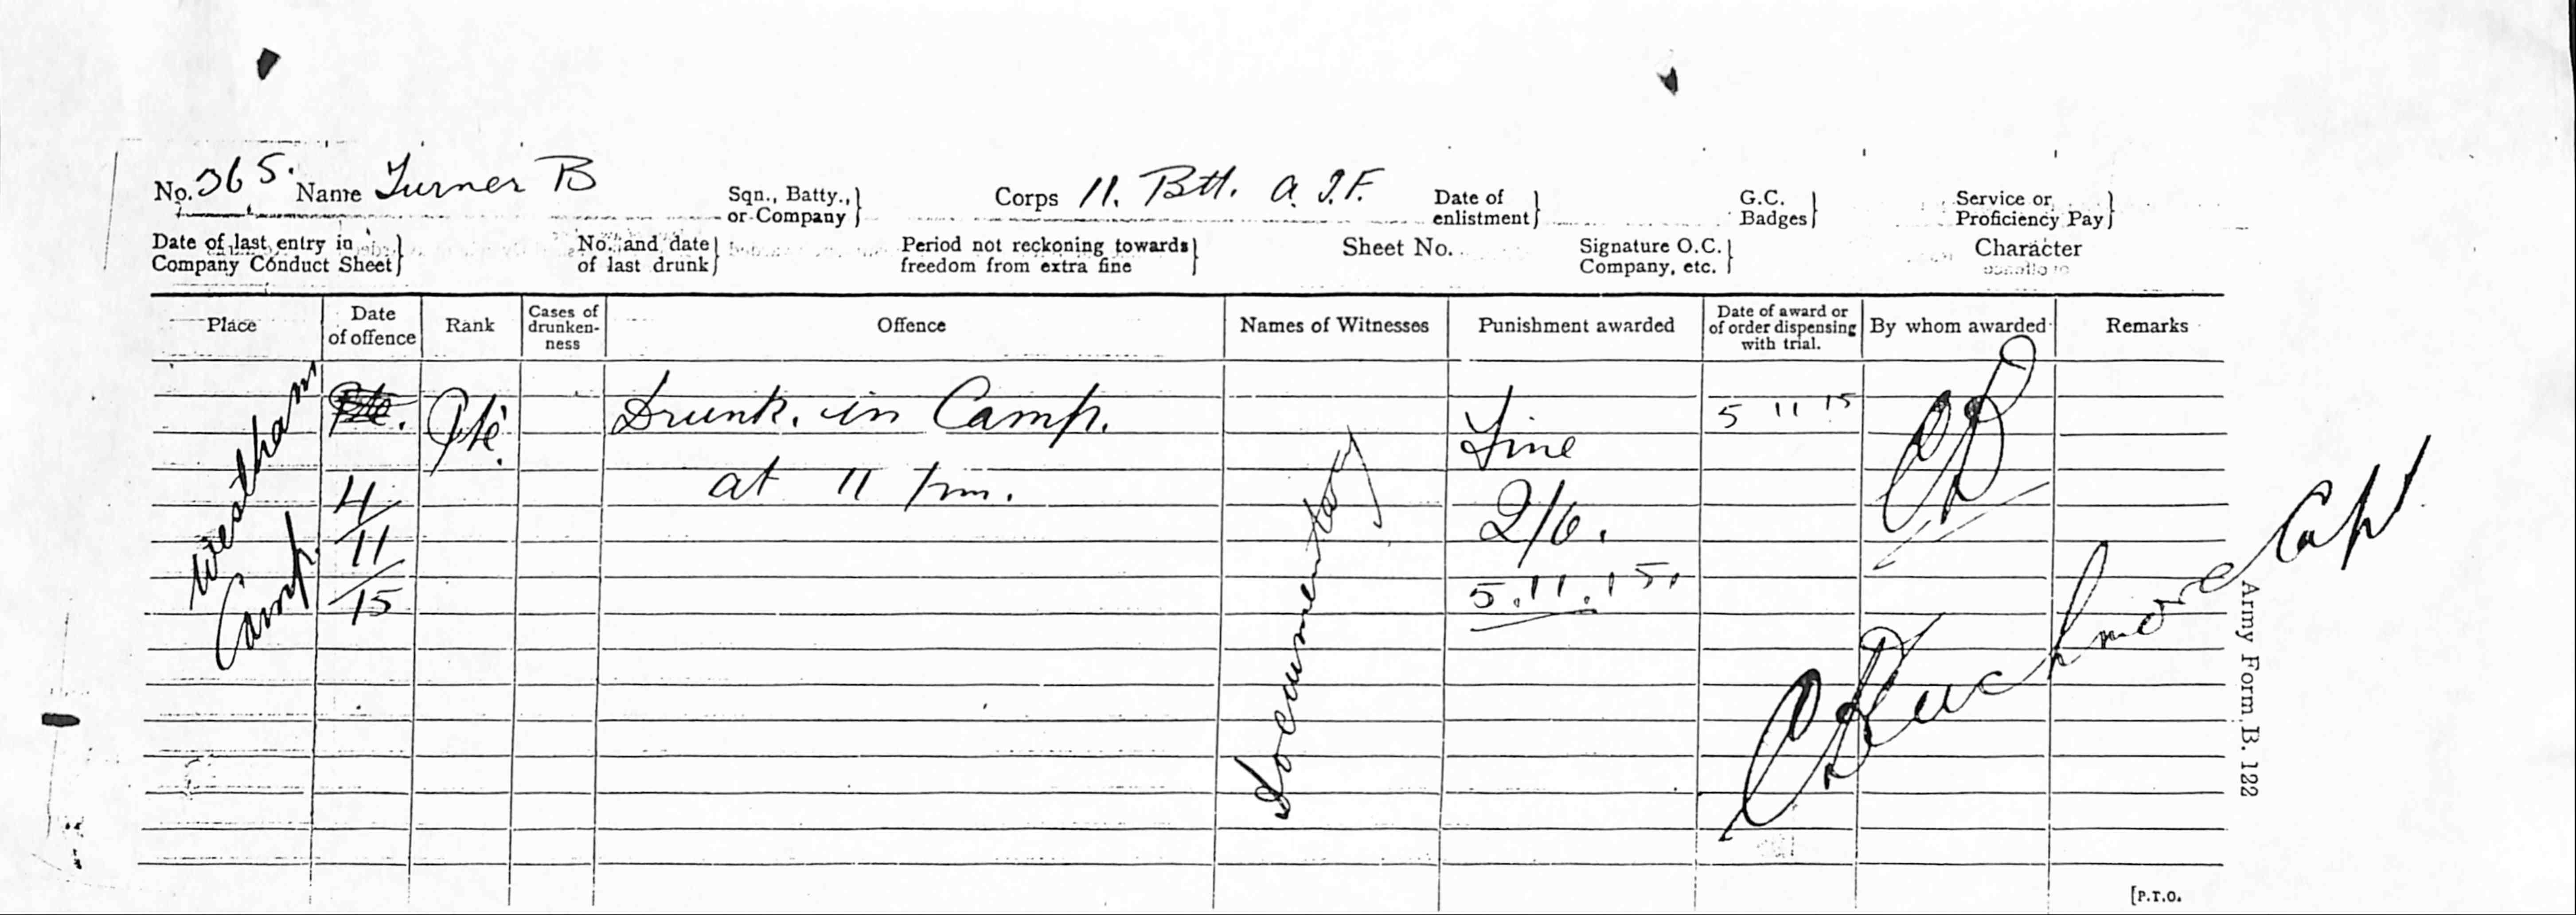 No. 365. Name Turner B Sqn., Batty., or Company} Corps 11. Btl. A.I.F. Date of enlistment} G.C. Badges} Service or Proficiency Pay}
Date of last entry in Company Conduct Sheet} No. and date of last drunk} Period not reckoning towards freedom from extra fine} Sheet No. Signature O.C. Company, etc.} Character
Place
Date of offence
Rank
Cases of drunken-ness
Offence
Names of Witnesses
Punishment awarded
Date of award or of order dispensing with trial.
By whom awarded
Remarks
Weatham
Camp.
Pte.
4/11/15
Pte.
Drunk. in Camp.
at 11 pm.
Documentary
Fine
2/6.
5.11.15.
5 11 15
Capt
Army Form B. 122
[P.T.O.